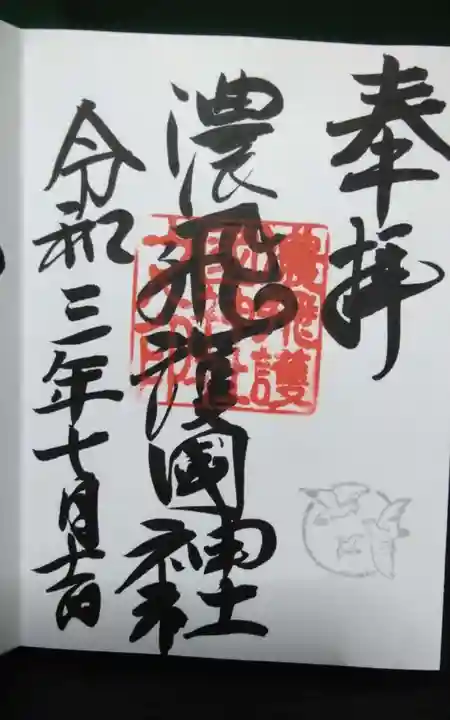 奉拝
濃飛護國神社
令和三年七月